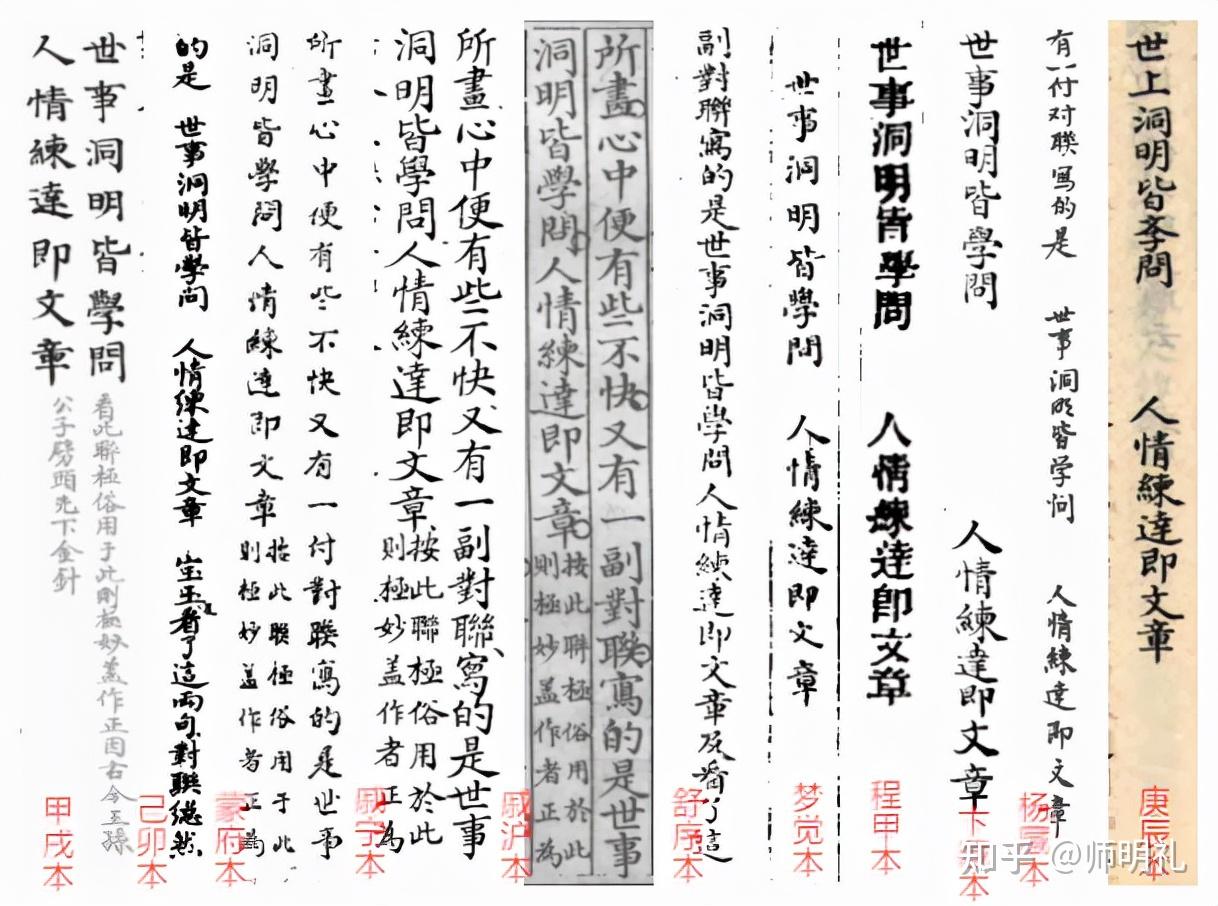 世上洞明皆斈問　人情練達即文章
庚辰本
有一付对联写的是　世事洞明皆学问　人情練達即文章
杨藏本
世事洞明皆學問　人情練達即文章
卞藏本
世事洞明皆學問　人情練達即文章
程甲本
世事洞明皆學問　人情練達即文章
梦觉本
副對聯寫的是世事洞明皆學問人情練達即文章及看了這
舒序本
所畫心中便有些不快又有一副對聯寫的是世事
洞明皆學問人情練達即文章按此聯極俗用於此
則極妙盖作者正為
戚沪本
所畫心中便有些不快又有一副對聯寫的是世事
洞明皆學問人情練達即文章按此聯極俗用於此
則極妙盖作者正為
戚宁本
所畫心中便有些不快又有一付對聯寫的是世事
洞明皆學問人情練達即文章此聯極俗用于此
則極妙盖作者正為
蒙府本
的是　世事洞明皆學问　人情練達即文章　宝玉看了這両句對聯縂然
己卯本
世事洞明皆學問
看此聯極俗用于此則極妙盖作正因古今王孫
人情練達即文章
公子劈頭先下金針
甲戌本
知乎 @师明礼